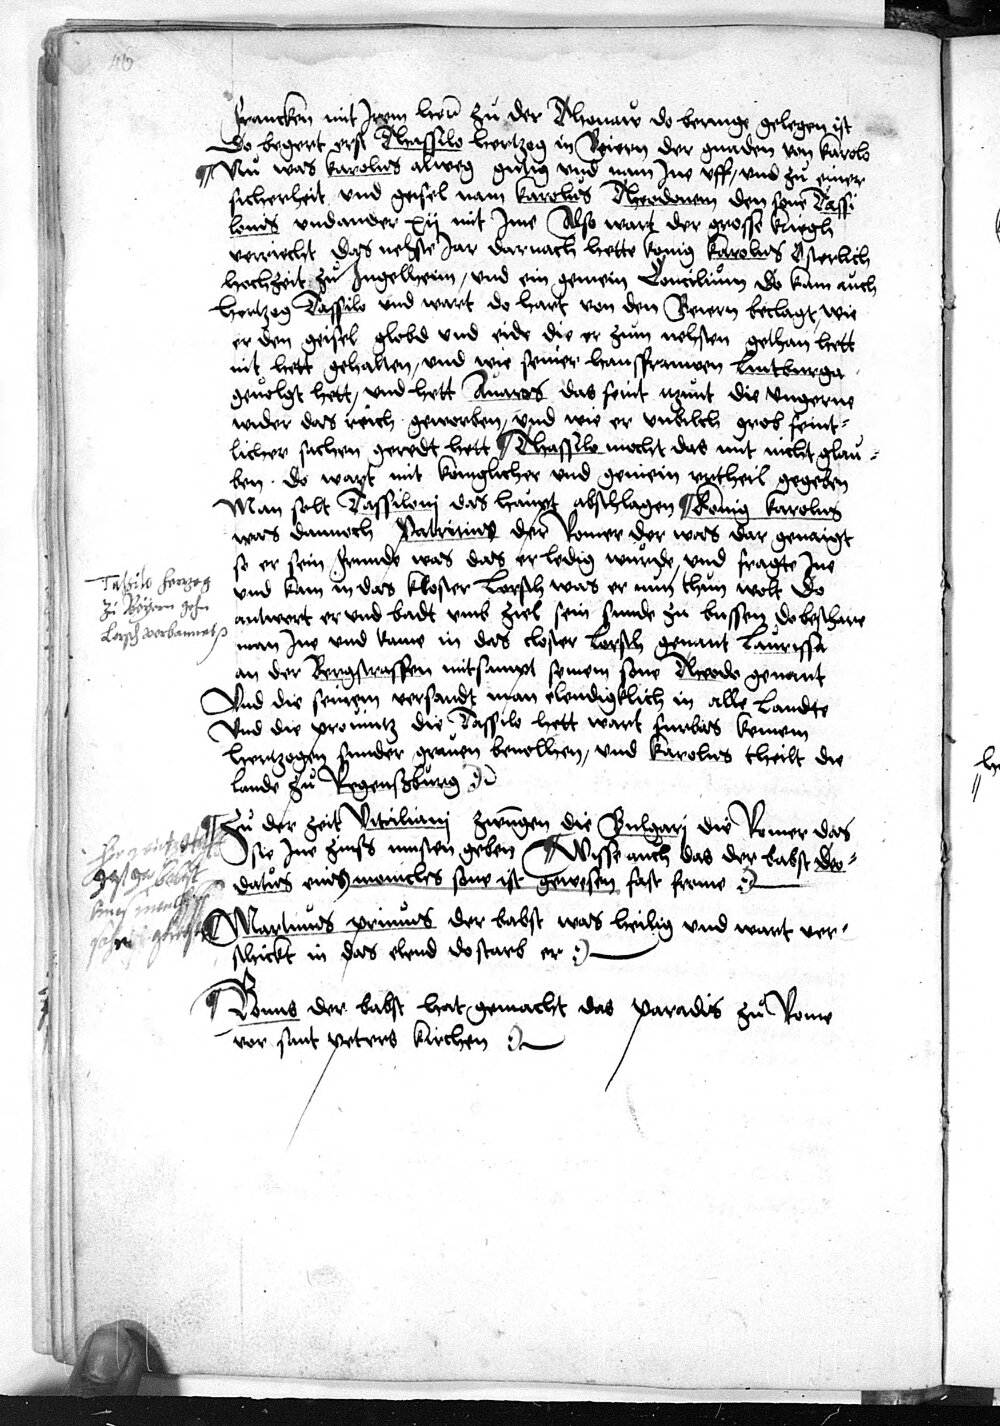 46
francken mit Irem herr zu der Thonaw do beringe gelegen ist
Do begert erst Thassilo hertzog in Beiern der gnaden von karolo
Nu was karolus alweg gutig und nam Ine uff, und zu einer
sicherheit und geisel nam karolus Theodonem den sone Tassi
lonis und ander xij mit Ime Also wart der grosse kriegh
verricht das nehste Jar darnach hette konig karolus Osterlich
hochzeit zu Ingelheim, und ein gemein Concilium do kam auch
hertzog Tassilo und wart do hart von den Beiern beclagt, wie
er den geisel globd und eide die er zum nehsten gethan hett
nit hett gehalten, und wie seiner hausfrauwen Lutburga
gevolgt hett, und hett Avares das seint nunt die ungerne
wider das reich geworben, und wie er unbilch grob feint-
licher sachen geredt hett Thassilo mocht das mit nicht glau-
ben. Do wart mit koniglicher und gemein urtheil gegeben
Man solt Tassiloni das haupt abschlagen Konig karolus
was dannoch Patricius der Romer der was dar geneigt
so er sein freunde was das er ledig wurde, und fragte Ine
und kam in das kloster Lorsch was er nun thun wolt Do
antwert er und badt umb ziel sein sunde zu bussen, do beschare
man Ine und kame in das closter Lorsch genant Laurissa
an der Bergstrassen mitsampt seinem sone Theodo genant
Und die seinem versandt man elendigklich in alle Landte
Und die provintz die Tassilo hett wart furbas keinem
hertzogen sunder graven bevolhen, und karolus theilt die
lande zu Regenszburg
Tassilo hertzog
zu Beyern gehn
Lorsch verbannet
Zu der zeit Vitaliani zwungen die Bulgari die Romer das
sie Ine zinss musten geben Wisse auch das der babst Deo-
datus eins monichs sone ist gewesen fast frome
Martinus primus der babst was heilig und wart ver-
schickt in das elend do starb er
Conus der babst hat gemacht das paradis zu Rome
vor sant peters kirchen